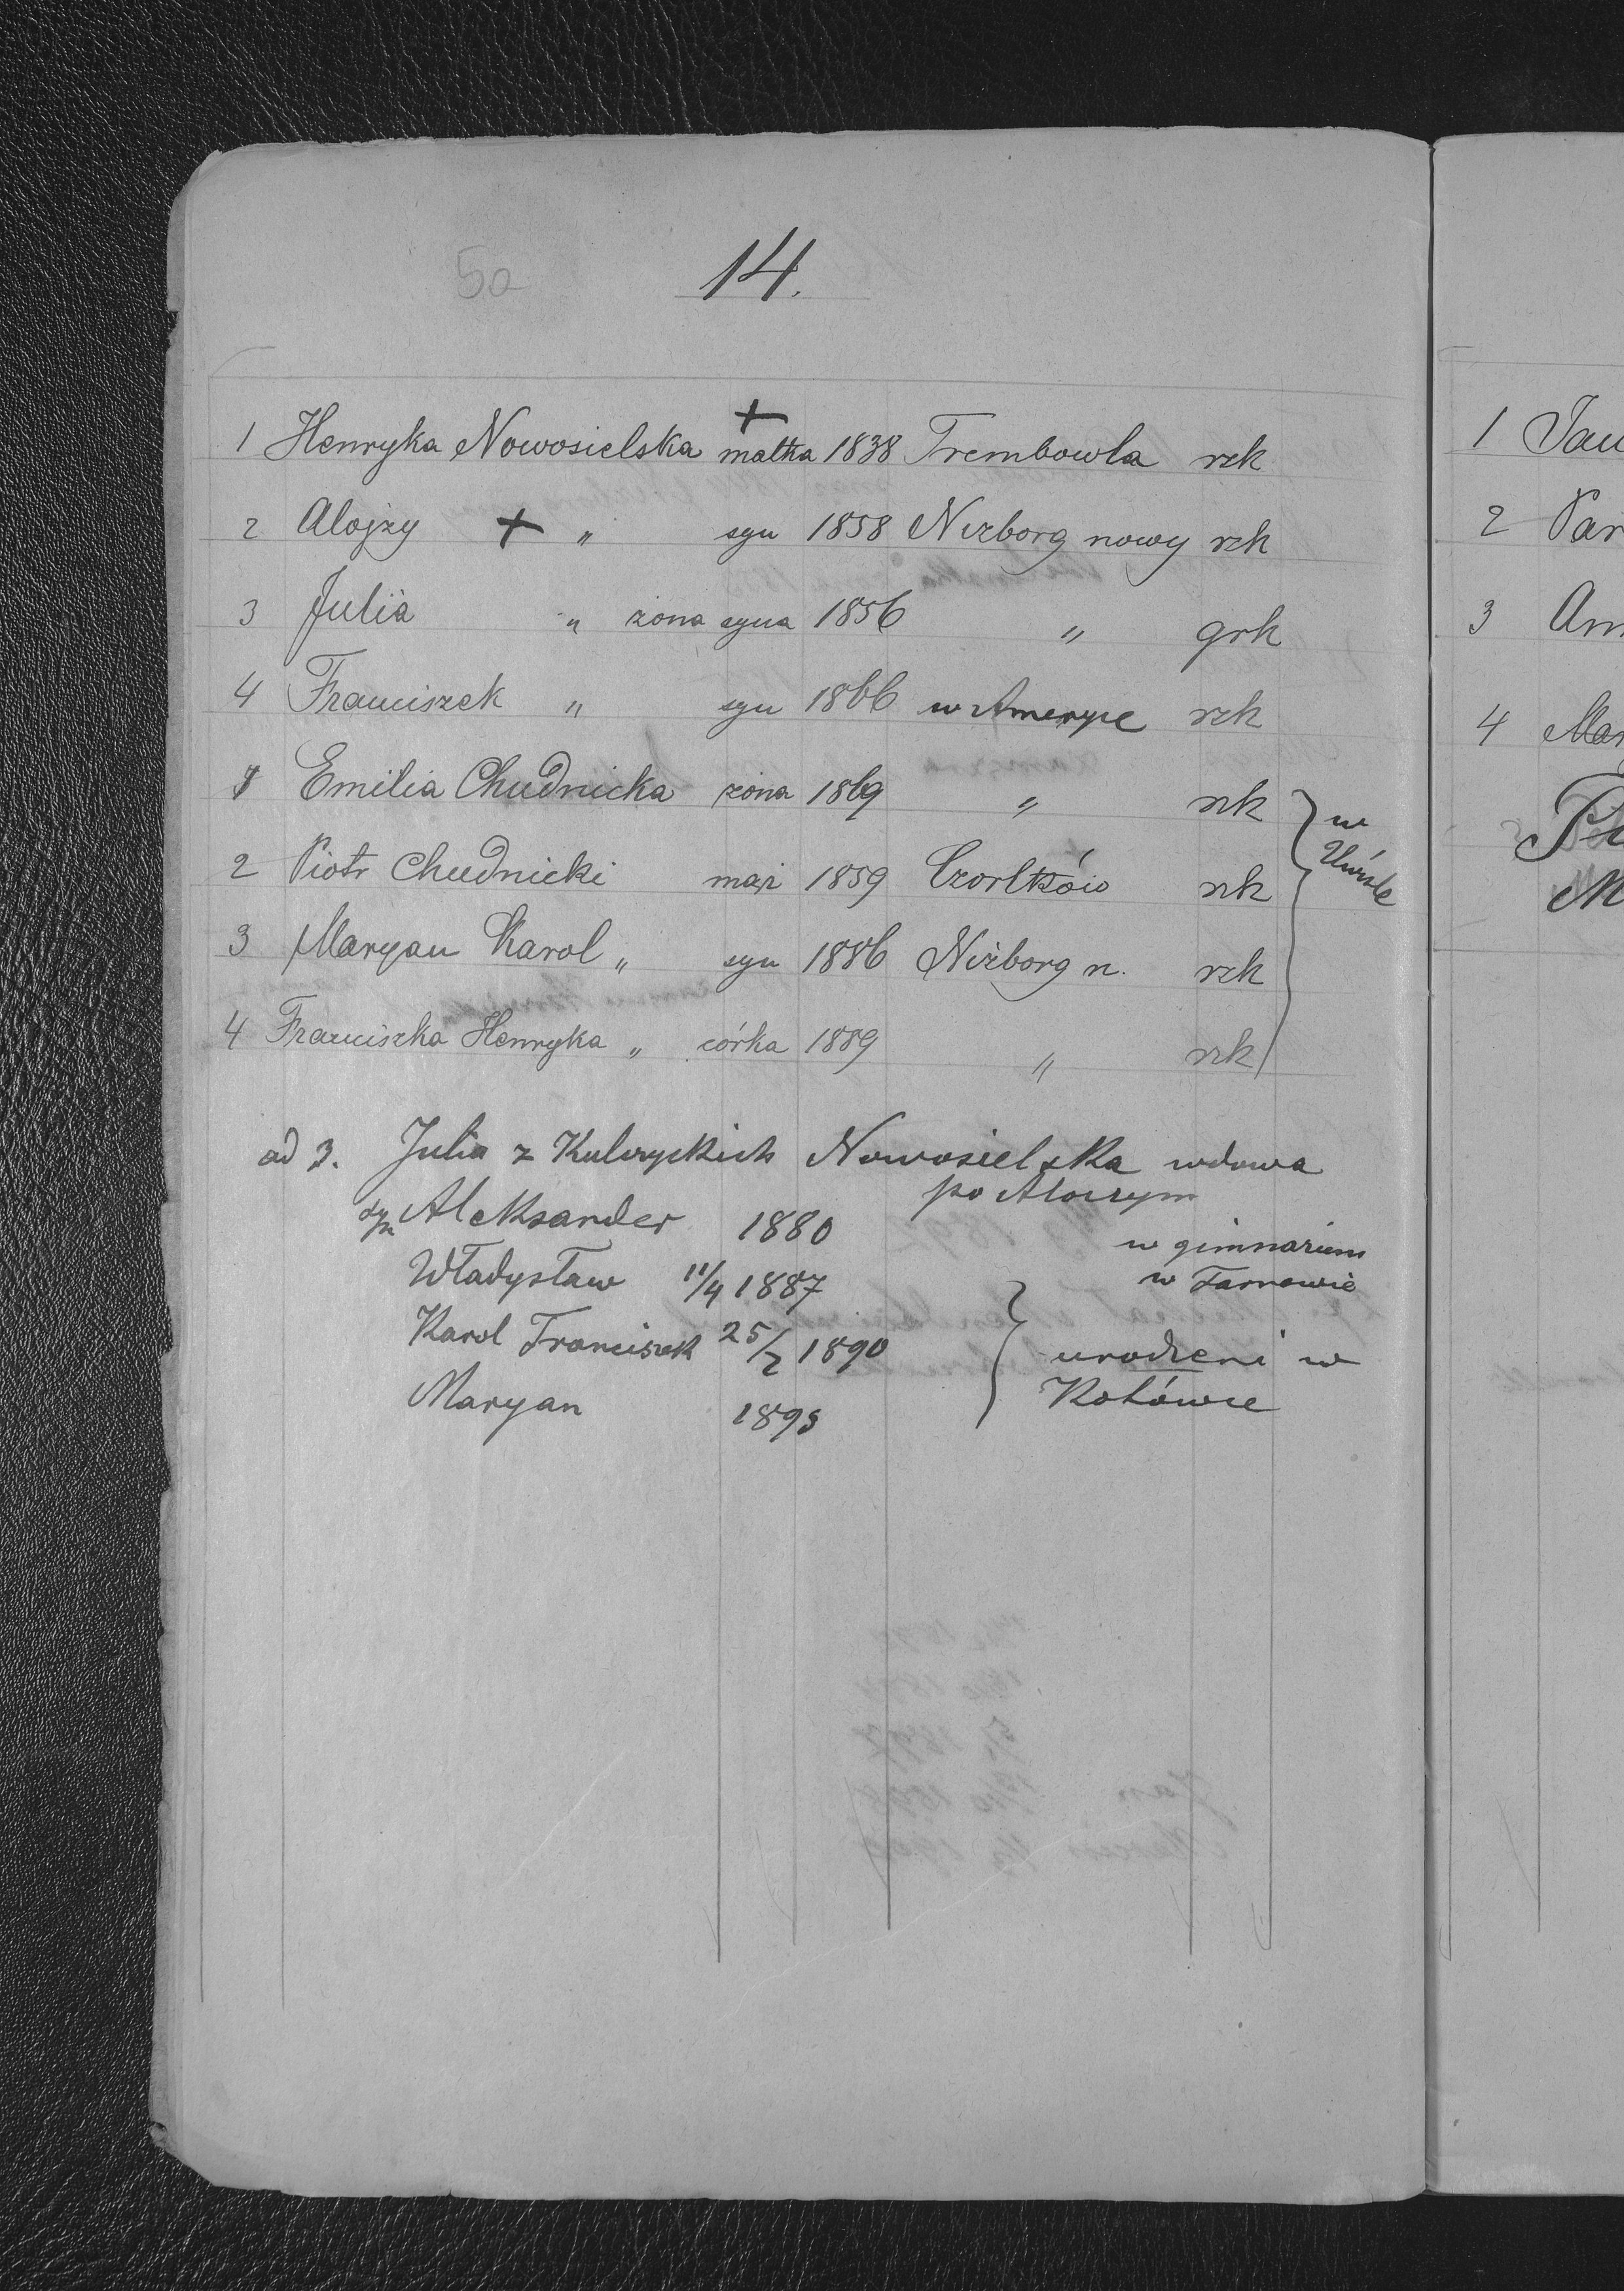 5a
14.
1 Henryka Nowosielska + matka 1838 Trembowla rzk
2 Alojzy + " syn 1858 Niżborg nowy rzk
3 Julia " żona syna 1856 " grk
4 Franciszek " syn 1866 w Ameryce rzk
1 Emilia Chudnicka żona 1869 " rzk
2 Piotr Chudnicki mąż 1859 Czortków rzk
w Uwiśle
3 Maryan Karol " syn 1886 Niżborg n. rzk
4 Franciszka Henryka " córka 1889 " rzk
ad 3. Julia z Kulczyckich Nowosielska wdowa
po Alojzym
syn Aleksander 1880 w gimnazium
w Tarnowie
Władysław 11/4 1887
Karol Franciszek 25/2 1890 urodzeni w
Maryan 1895 Kotówce
1 Jau
2 Par
3 An
4 Mar